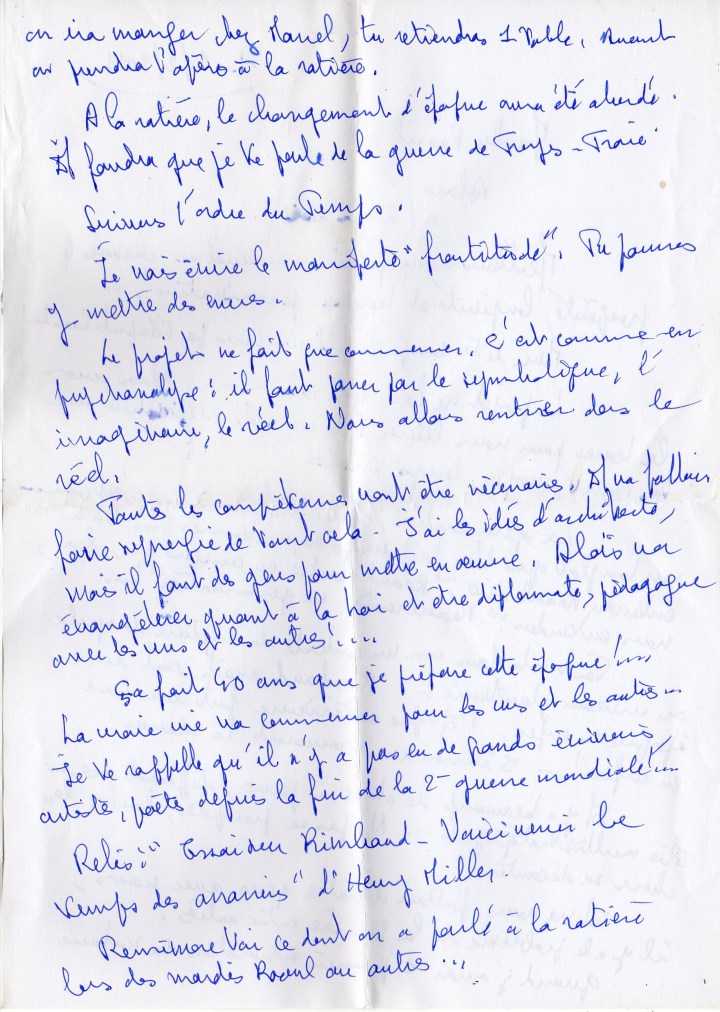 on ira manger chez Marcel, tu retiendras 1 table. Avant
on prendra l'apéro à la ratière.
A la ratière, le changement d'époque aura été abordé.
Il faudra que je te parle de la guerre de Troyes - Troie
Suivons l'ordre du Temps.
Je vais écrire le manifeste " ". Tu pourras
y mettre des encres.
Le projet ne fait que commencer. C'est comme en
psychanalyse : il faut passer par le symbolique, l'
imaginaire, le réel. Nous allons rentrer dans le
réel.
Toutes les compétences vont être nécessaires. Il va falloir
faire synergie de tout cela. J'ai les idées d'architecte,
mais il faut des gens pour mettre en oeuvre Aloïs va
évangéliser quant à la et être diplomate, pédagogue
avec les uns et les autres !....
Ça fait 40 ans que je prépare cette époque !...
La vraie vie va commencer pour les uns et les autres...
Je te rappelle qu'il n'y a pas eu de grands écrivains,
artistes, poètes depuis la fin de la 2e guerre mondiale !...
Relis : " Essai sur Rimbaud - Voici venir le
temps des assassins" d'Henry Miller.
Remémore toi ce dont on a parlé à la ratière
lors des mardis Raoul ou autres ...